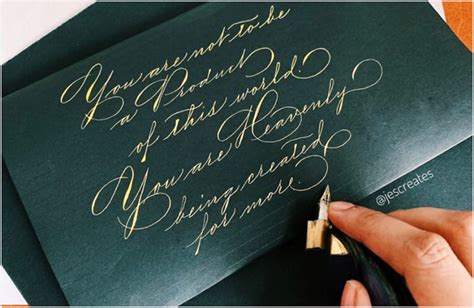 You are not to be
a Product
of this world.
You are Heavenly
being created
for more.
@jescreates